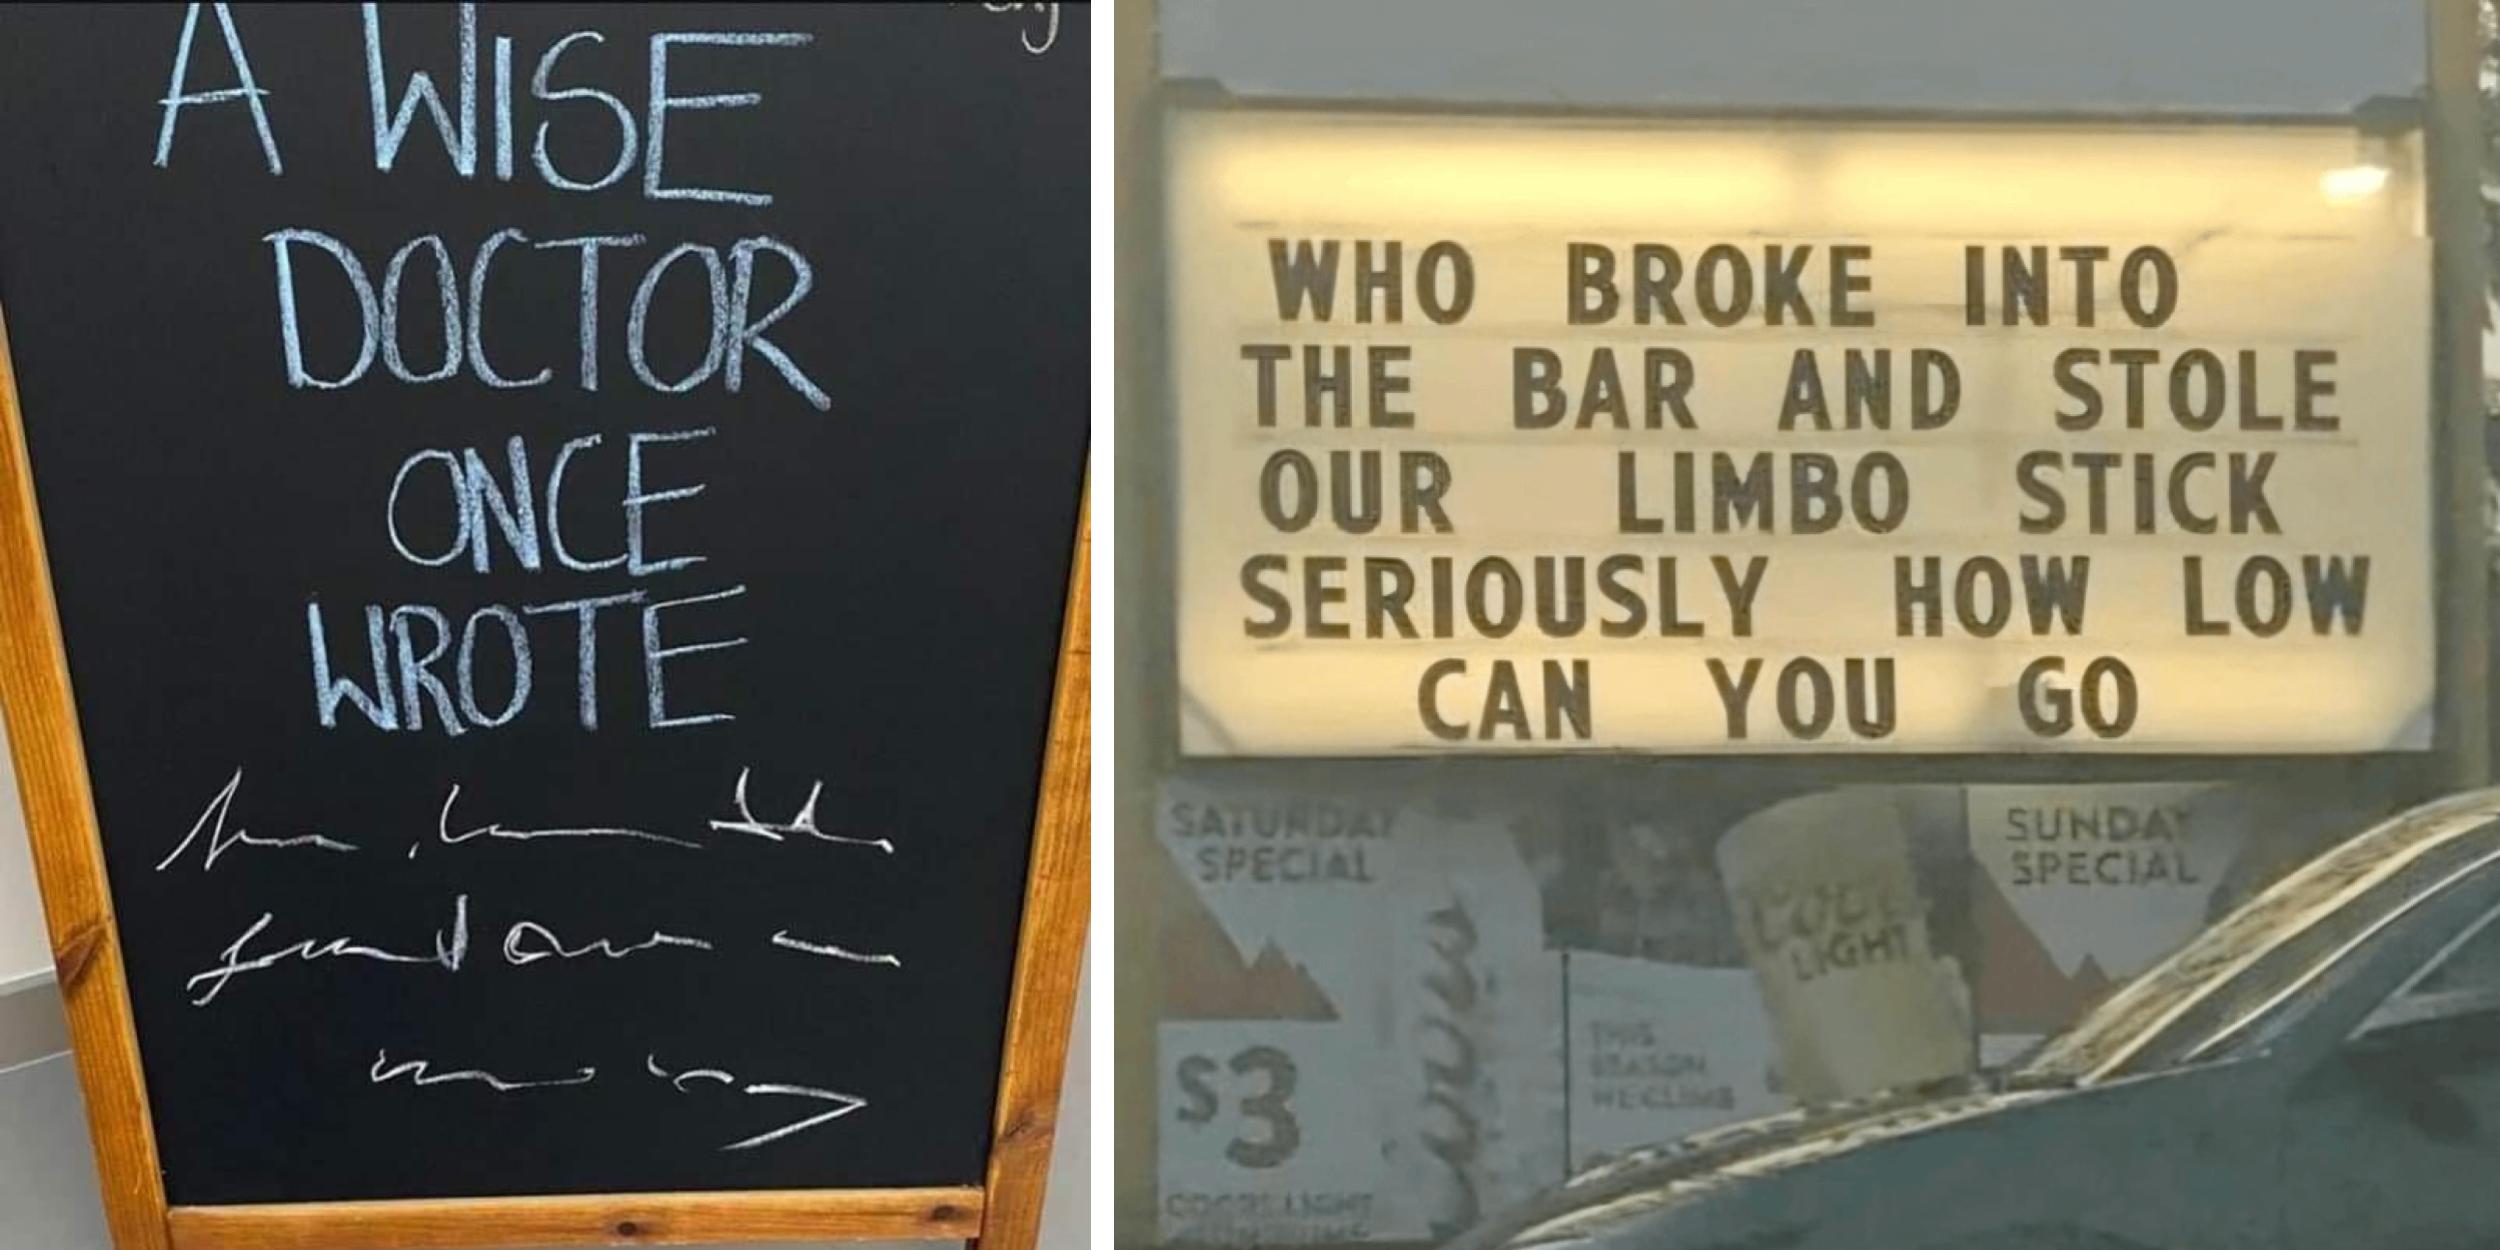 A WISE
DOCTOR
ONCE
WROTE
WHO BROKE INTO
THE BAR AND STOLE
OUR LIMBO STICK
SERIOUSLY HOW LOW
CAN YOU GO
SATURDAY
SPECIAL
SUNDAY
SPECIAL
LIGHT
THIS
SEASON
WE CLIMB
$3